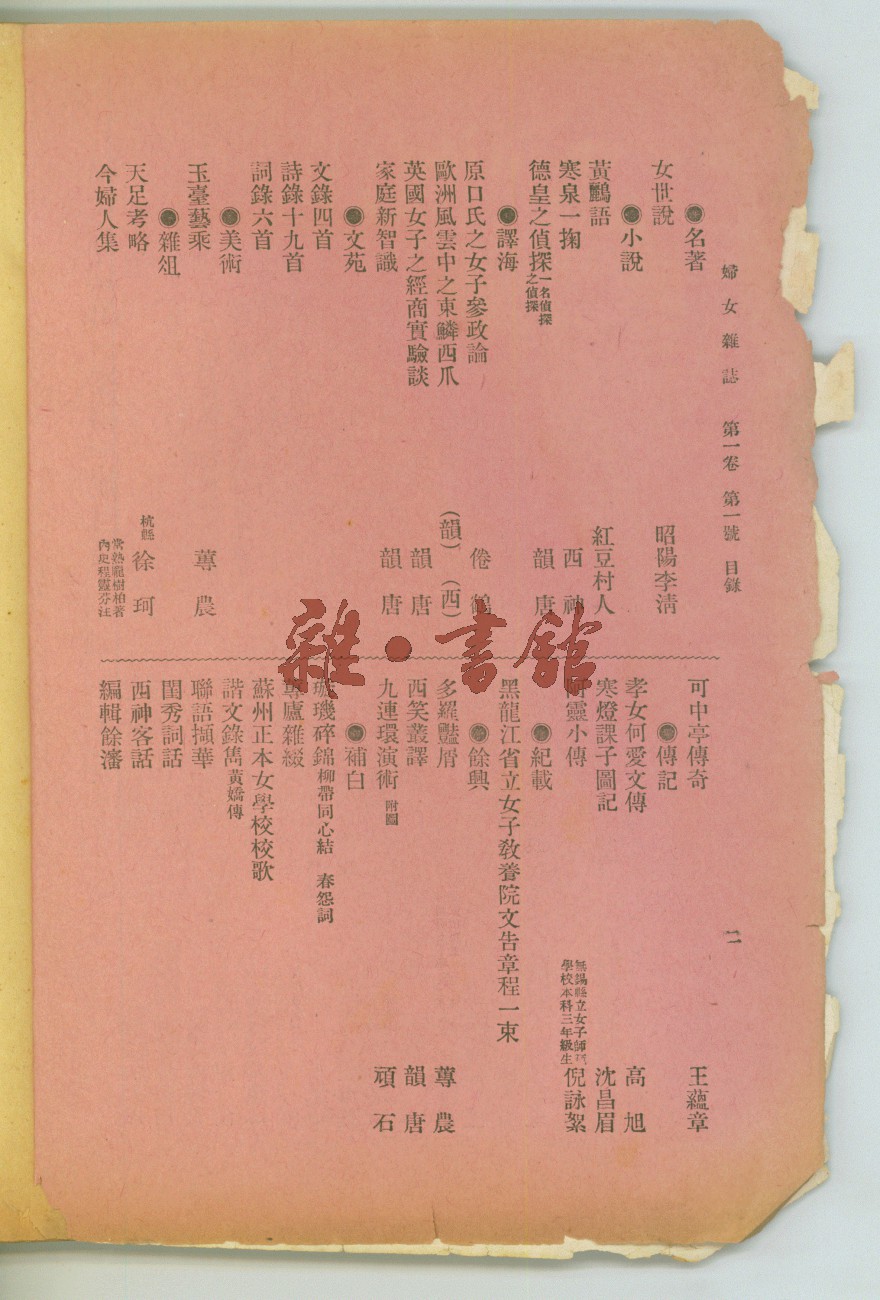 婦女雜誌 第一卷 第一號 目錄
二
●名著
女世說 昭陽李清
●小說
黃鸝語 紅豆村人
寒泉一掬 西神
德皇之偵探 一名偵探之偵探 韻唐
●譯海
原口氏之女子參政論 倦鶴
歐洲風雲中之東鱗西爪 (韻)(西)
英國女子之經商實驗談 韻唐
家庭新智識 韻唐
●文苑
文錄四首
詩錄十九首
詞錄六首
●美術
玉臺藝乘 蓴農
●雜俎
天足考略 杭縣 徐珂
今婦人集 常熟龐樹柏著 內史程靈芬注
可中亭傳奇 王蘊章
●傳記
孝女何愛文傳 高旭
寒燈課子圖記 沈昌眉
靈小傳 無錫縣立女子師範學校本科三年級生 倪詠絮
●紀載
黑龍江省立女子教養院文告章程一束
●餘興
多羅豔屑 蓴農
西笑叢譯 韻唐
九連環演術 附圖 頑石
●補白
璇璣碎錦 柳帶同心結 春怨詞
蓴廬雜綴
蘇州正本女學校校歌
諧文錄雋 黃嬌傳
聯語擷華
閨秀詞話
西神客話
編輯餘瀋
雜·書館